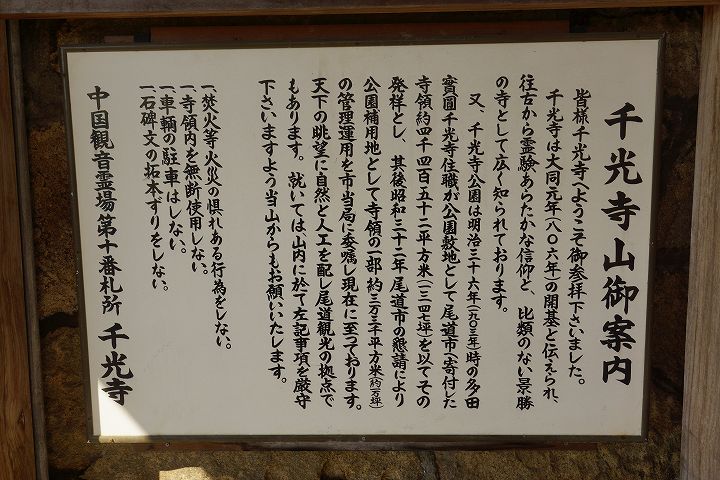 千光寺山御案内
皆様千光寺へようこそ御参拝下さいました。
千光寺は大同元年(八〇六年)の開基と伝えられ、
往古から霊験あらたかな信仰と、比類のない景勝
の寺として広く知られております。
又、千光寺公園は明治三十六年(一九〇三年)時の多田
實圓千光寺住職が公園敷地として尾道市へ寄付した
寺領約四千四百五十二平方米(一三四七坪)を以てその
発祥とし、其後昭和三十二年尾道市の懇請により
公園補用地として寺領の一部約三万三千平方米(約一万坪)
の管理運用を市当局に委嘱し現在に至つております。
天下の眺望に自然と人工を配し尾道観光の拠点で
もあります。就いては山内に於て左記事項を厳守
下さいますよう当山からもお願いいたします。
一、焚火等火災の惧れある行為をしない。
一、寺領内を無断使用しない。
一、車輌の駐車はしない。
一、石碑文の拓本ずりをしない。
中国観音霊場第十番札所 千光寺